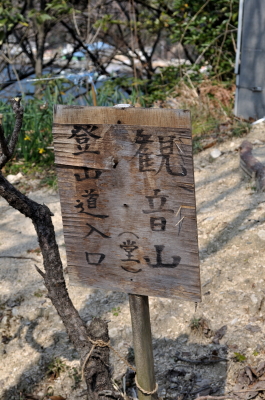 観音山
(堂)
登山道入口